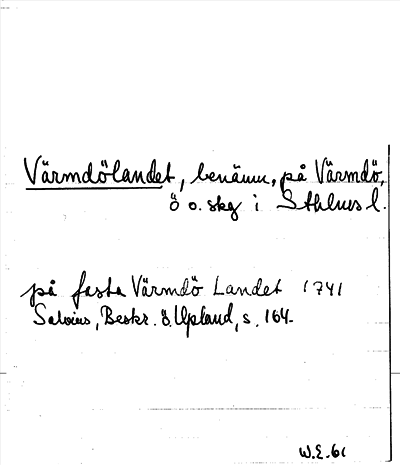 Värmdölandet, benämn. på Värmdö,
ö o. skg i Sthlms l.
på fasta Värmdö Landet 1741
Salvius, Beskr. ö. Upland, s. 164.
W.E. 61